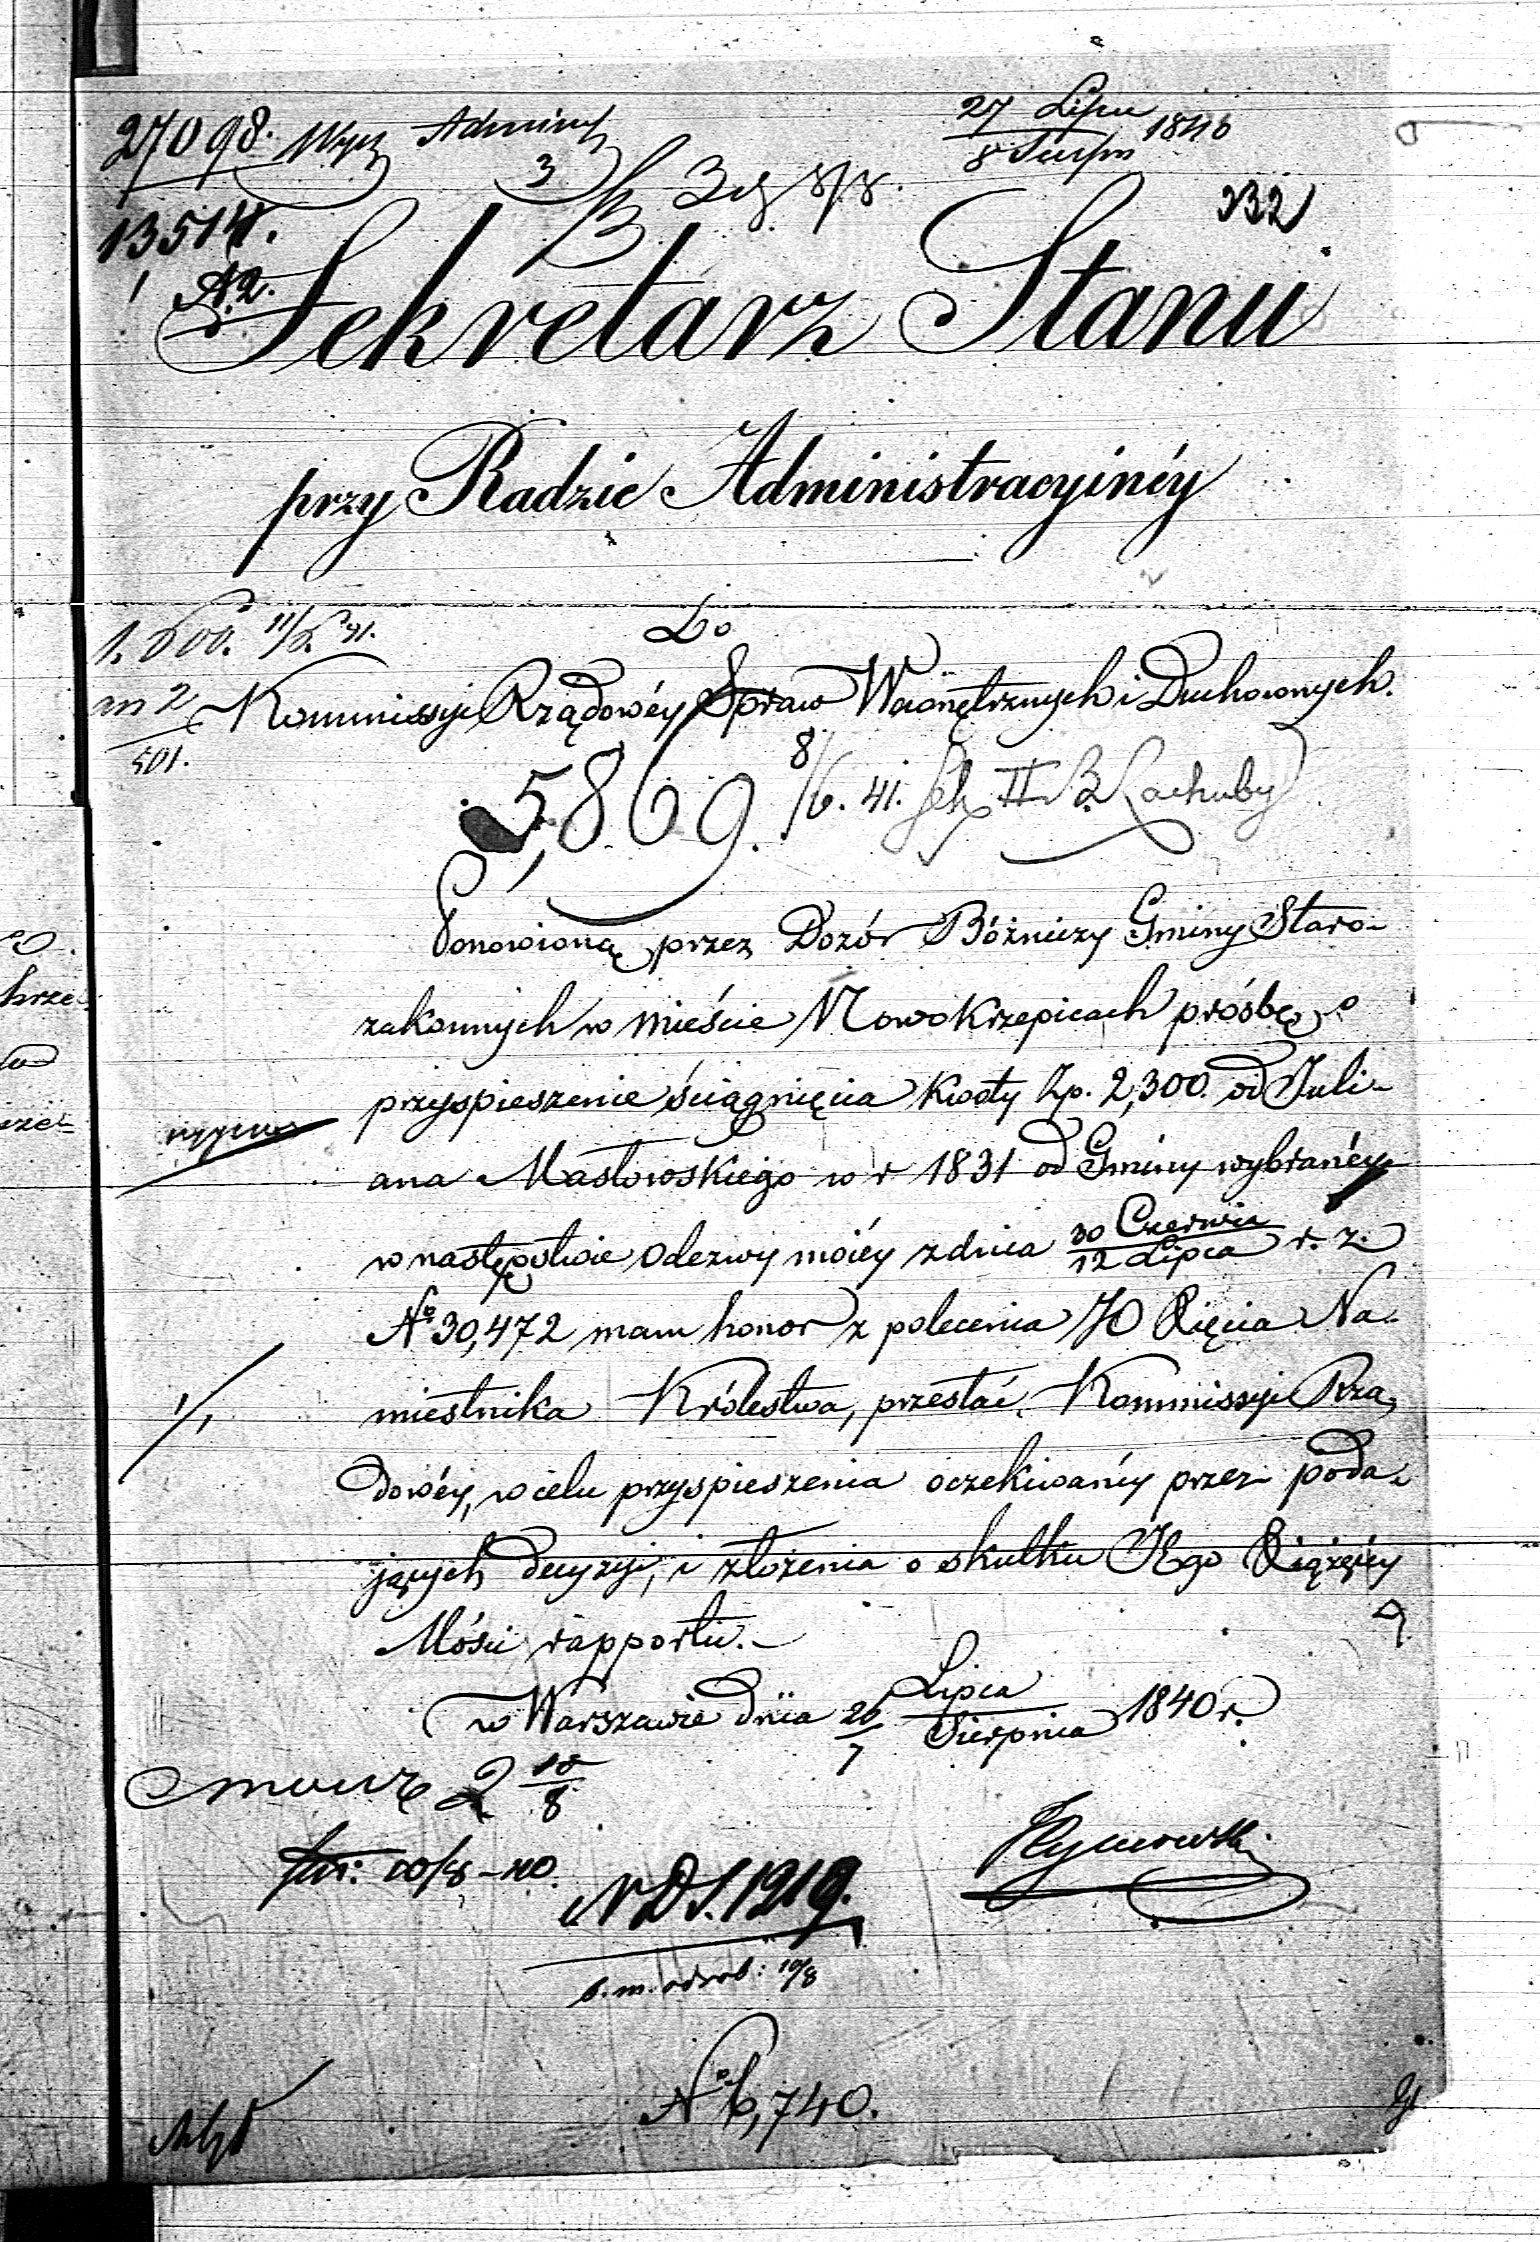 27098.
27 Lipca
8 Sierpn 1840
3
13514.
332
A2.
Sekretarz Stanu
przy Radzie Administracyinéy
Do
Kommissyi Rządowéy Spraw Wewnętrznych i Duchownych.
501.
5,869. 8/6. 41.
Ponowioną przez Dozór Bóżniczy Gminy Staro-
zakonnych w mieście Nowokrzepicach prośbę o
przyspieszenie ściągnięcia kwoty Zp. 2,300. od Juli-
ana Masłowskiego w r 1831 od Gminy wybranéy
w następstwie odezwy moiéy z dnia 30 Czerwca
12 Lipca r. z.
No 30,472 mam honor z polecenia JO Xięcia Na-
miestnika Królestwa, przesłać Kommissyi Rzą-
dowéy, w celu przyspieszenia oczekiwanéy przez poda-
jących decyzyi, i złożenia o skutku JEgo Xiążęcéy
Mości rapportu.-
w Warszawie dnia 26 Lipca
7 Sierpnia 1840 r.
2 10/8
10/8 - 40.
N D S. 1219.
b. m. odrob: 10/8
No 6,740.